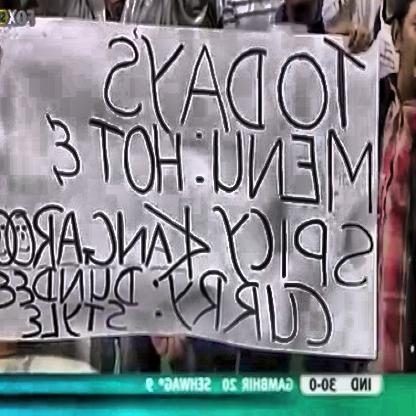 TODAY'S
MENU: HOT &
SPICY KANGAROO
CURRY. DUNDEE
STYLE
IND 30-0 GAMBHIR 20 SEHWAG* 9